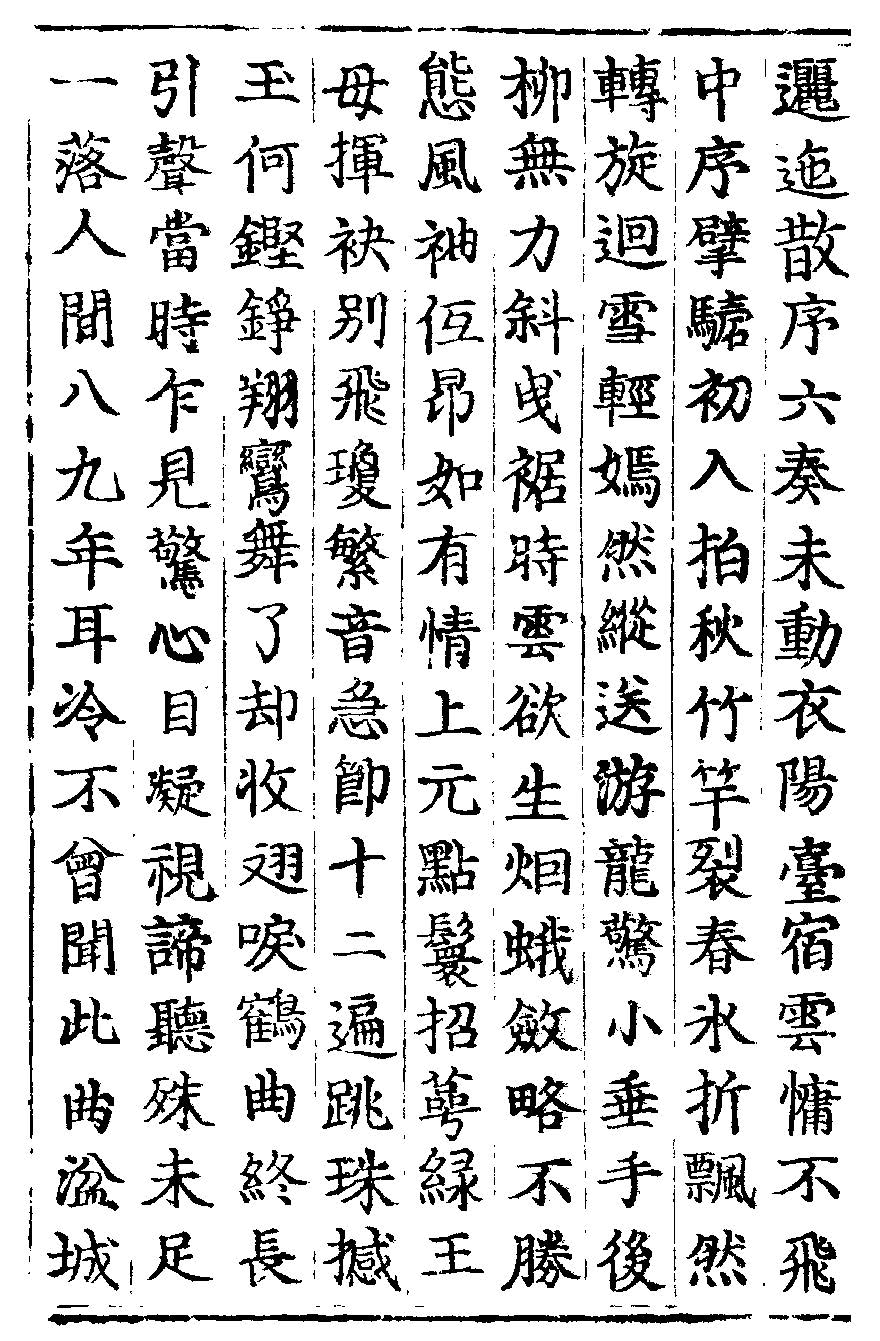 邐迤散序六奏未動衣陽臺宿雲慵不飛
中序擘騞初入拍秋竹竿裂春氷折飄然
轉旋迴雪輕嫣然縱送游龍驚小垂手後
柳無力斜曳裾時雲欲生烟蛾斂略不勝
態風袖低昂如有情上元點鬟招萼緑王
母揮袂别飛瓊繁音急節十二遍跳珠撼
玉何鏗錚翔鸞舞了却收翅唳鶴曲終長
引聲當時乍見驚心目凝視諦聽殊未足
一落人間八九年耳冷不曾聞此曲湓城